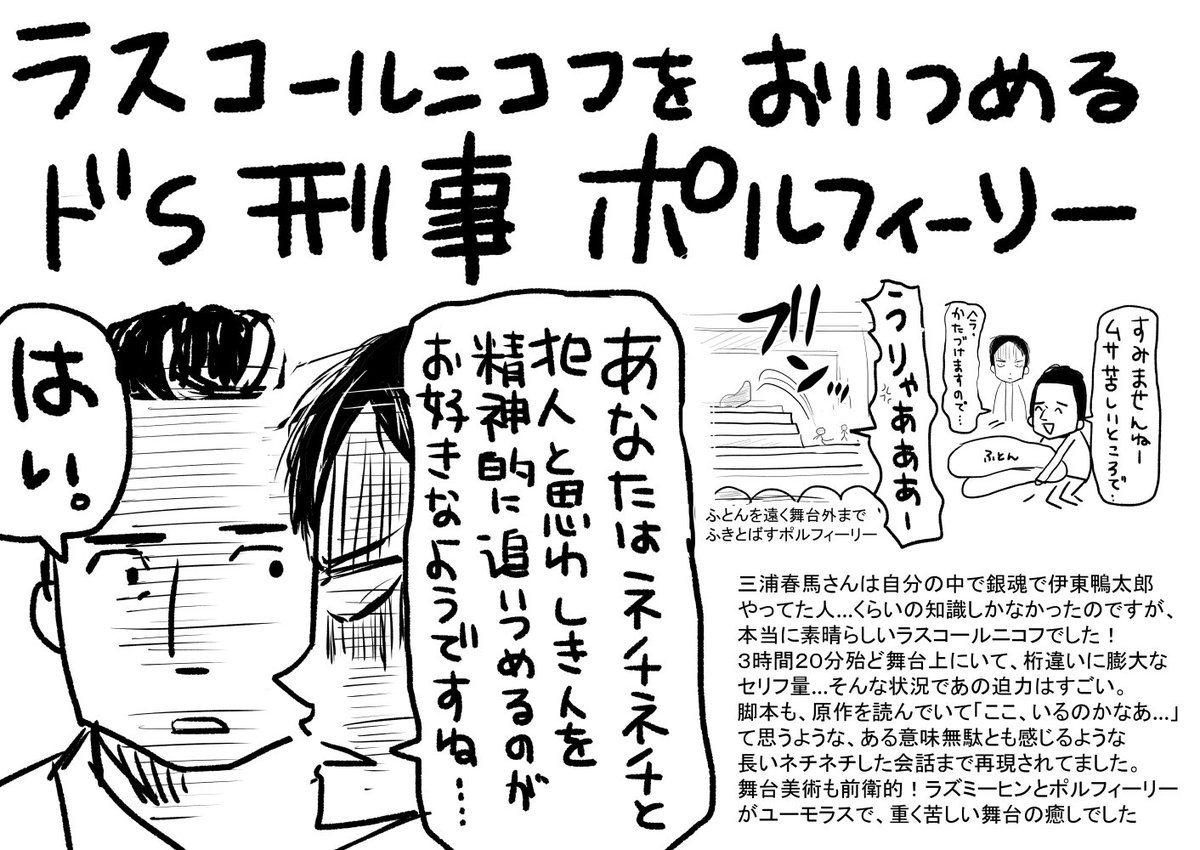 ラスコールニコフを おいつめる
ドS刑事 ポルフィーリー
はい。
あなたはネチネチと
犯人と思わしき人を
精神的に追いつめるのが
お好きなようですね…
すみませんねー
ムサ苦しいところで…
今、
かたづけますので…
ふとん
うりゃあああー
ブンッ
ふとんを遠く舞台外まで
ふきとばすポルフィーリー
三浦春馬さんは自分の中で銀魂で伊東鴨太郎
やってた人…くらいの知識しかなかったのですが、
本当に素晴らしいラスコールニコフでした！
３時間２０分殆ど舞台上にいて、桁違いに膨大な
セリフ量…そんな状況であの迫力はすごい。
脚本も、原作を読んでいて「ここ、いるのかなあ…」
て思うような、ある意味無駄とも感じるような
長いネチネチした会話まで再現されてました。
舞台美術も前衛的！ラズミーヒンとポルフィーリー
がユーモラスで、重く苦しい舞台の癒しでした